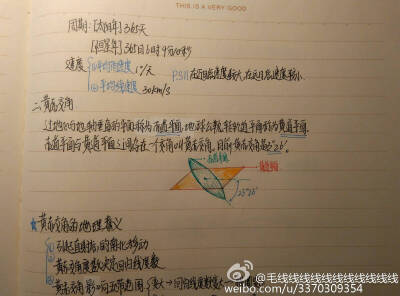 THIS IS A VERY GOOD
周期:[太阳年]365天
[恒星年]365日6时9分10秒
速度 ①平均角速度 1°/天
②平均线速度 30km/s
P.S. 在近日点速度较大,在远日点速度较小.
二.黄赤交角
过地心与地轴垂直的平面称为赤道平面,地球公转轨道平面称为黄道平面.
赤道平面与黄道平面之间存在一个交角叫黄赤交角,目前黄赤交角是23°26′.
赤道平面
黄道平面
23°26′
★黄赤交角的地理意义
① 引起直射点的南北移动
② 黄赤交角度数决定回归线度数
③ 黄赤交角影响五带范围
@毛线线线线线线线线线线线线线
weibo.com/u/3370309354